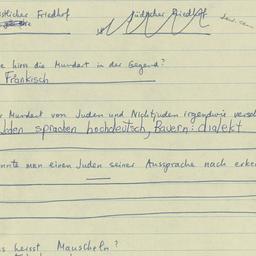 stlicher Friedhof jüdischer Friedhof
e hiess die Mundart in der Gegend?
Fränkisch
Mundart von Juden und Nichtjuden irgendwie versch
uden sprachen hochdeutsch, Bauern: dialekt
nnte man einen Juden seiner Aussprache nach erke
s heisst Mauscheln?